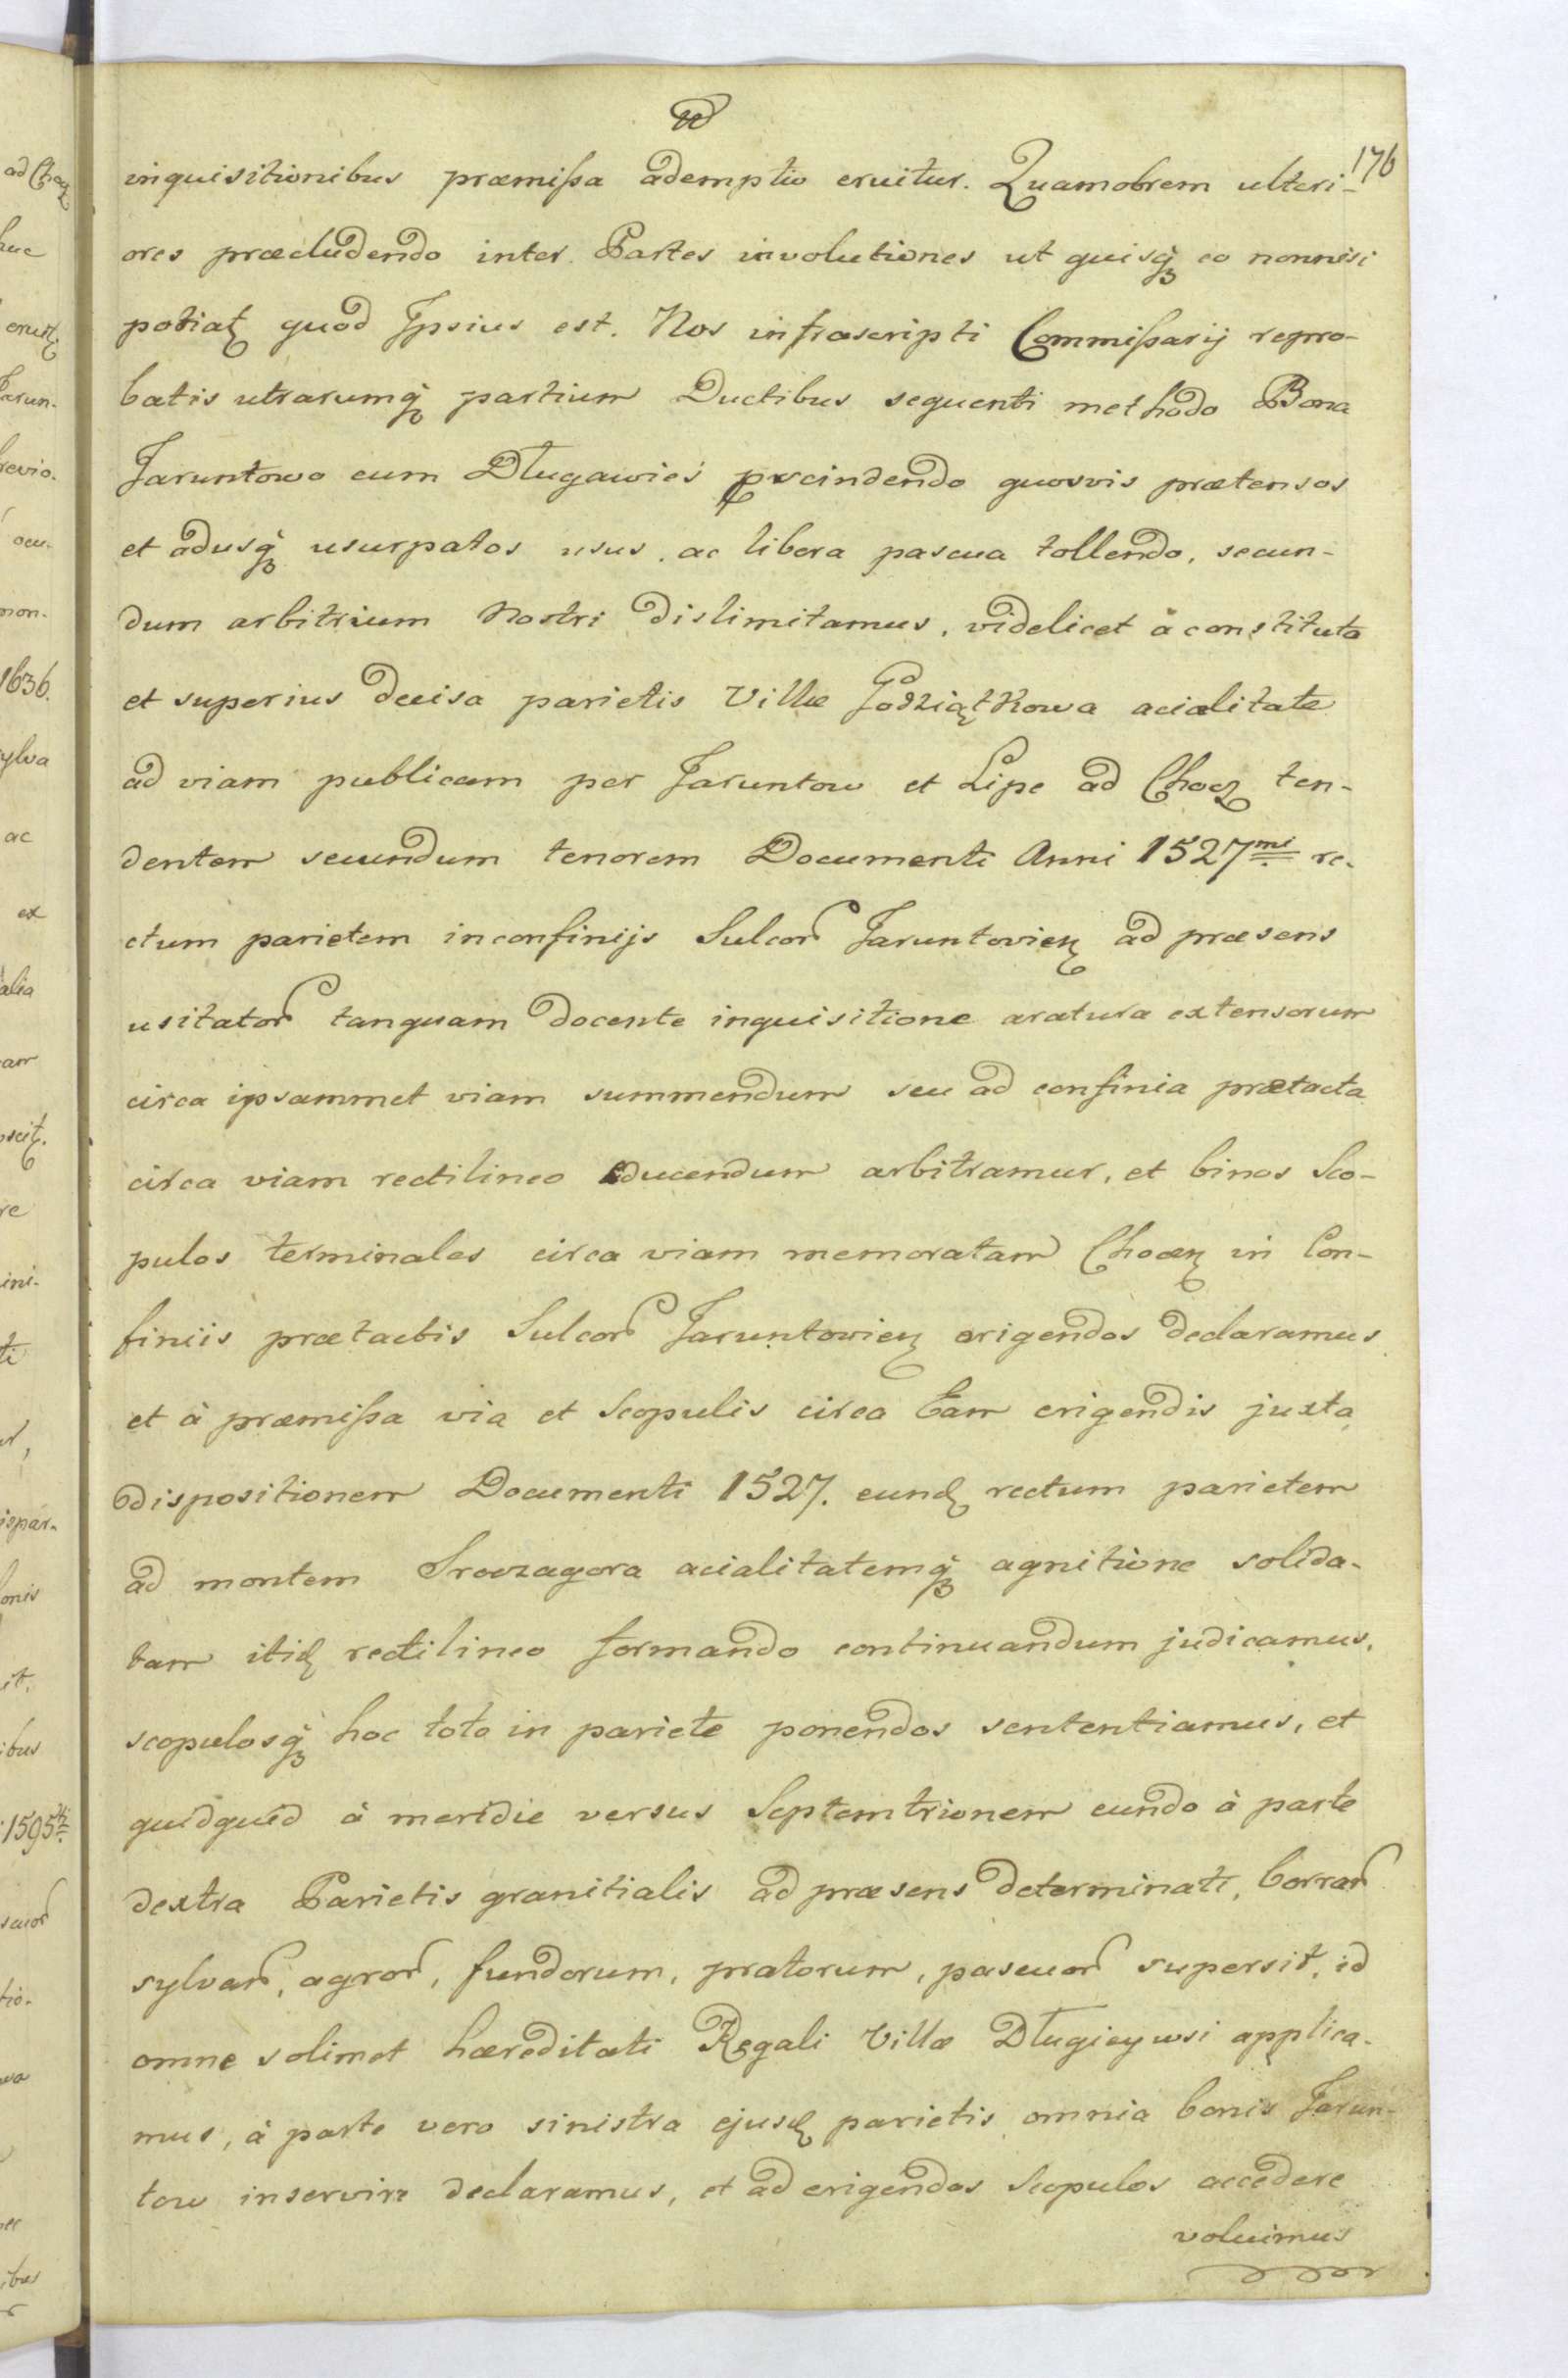 176
inquisitionibus præmissa ademptio eruitur. Quamobrem ulteri-
ores præcludendo inter Partes involutiones ut quisq́ꝫ eo nonnisi
potiatꝫ quod Jpsius est. Nos infrascripti Commissarij repro-
batis utrarumq́ꝫ partium Ductibus sequenti methodo Bona
Jaruntowo cum Długawieś præcindendo quosvis prætensos
et adusq́ꝫ usurpatos usus ac libera pascua tollendo, secun-
dum arbitrium Nostri dislimitamus, videlicet à constituta
et superius decisa parietis Villæ Godziątkowa acialitate
ad viam publicam per Jaruntow et Lipe ad Chocz ten-
dentem secundum tenorem Documenti Anni 1527mi re-
ctum parietem in confinijs Sulcor Jaruntovien ad præsens
usitator tanquam docente inquisitione aratura extensorum
circa ipsammet viam summendum seu ad confinia prætacta
circa viam rectilineo ducendum arbitramur, et binos Sco-
pulos terminales circa viam memoratam Chocen in Con-
finiis prætactis Sulcor Jaruntovien erigendos declaramus
et à præmissa via et Scopulis circa Eam erigendis juxta
dispositionem Documenti 1527. eund rectum parietem
ad montem Srocza gora acialitatemq́ꝫ agnitione solida-
tam itid rectilineo formando continuandum judicamus,
scopulosq́ꝫ hoc toto in pariete ponendos sententiamus, et
quidquid à meridie versus Septemtrionem eundo à parte
dextra Parietis granitialis ad præsens determinati, borrar
sylvar, agror, fundorum, pratorum, pascuor supersit, id
omne solimet hæreditati Regali Villæ Długieywsi applica-
mus, à parte vero sinistra ejusd parietis omnia bonis Jarun-
tow inservire declaramus, et ad erigendos Scopulos accedere
voluimus